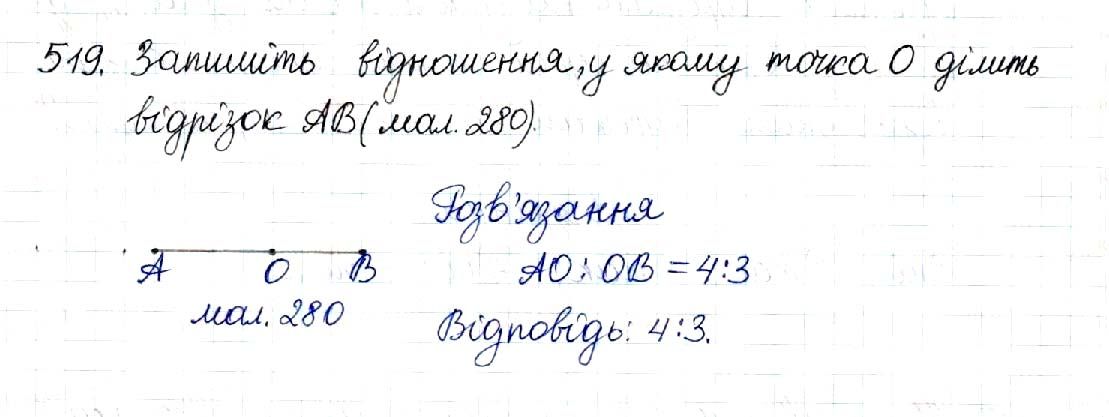 519. Запишіть відношення, у якому точка О ділить
відрізок АВ (мал. 280).
Розв'язання
А О В
АО : ОВ = 4:3
мал. 280
Відповідь: 4:3.